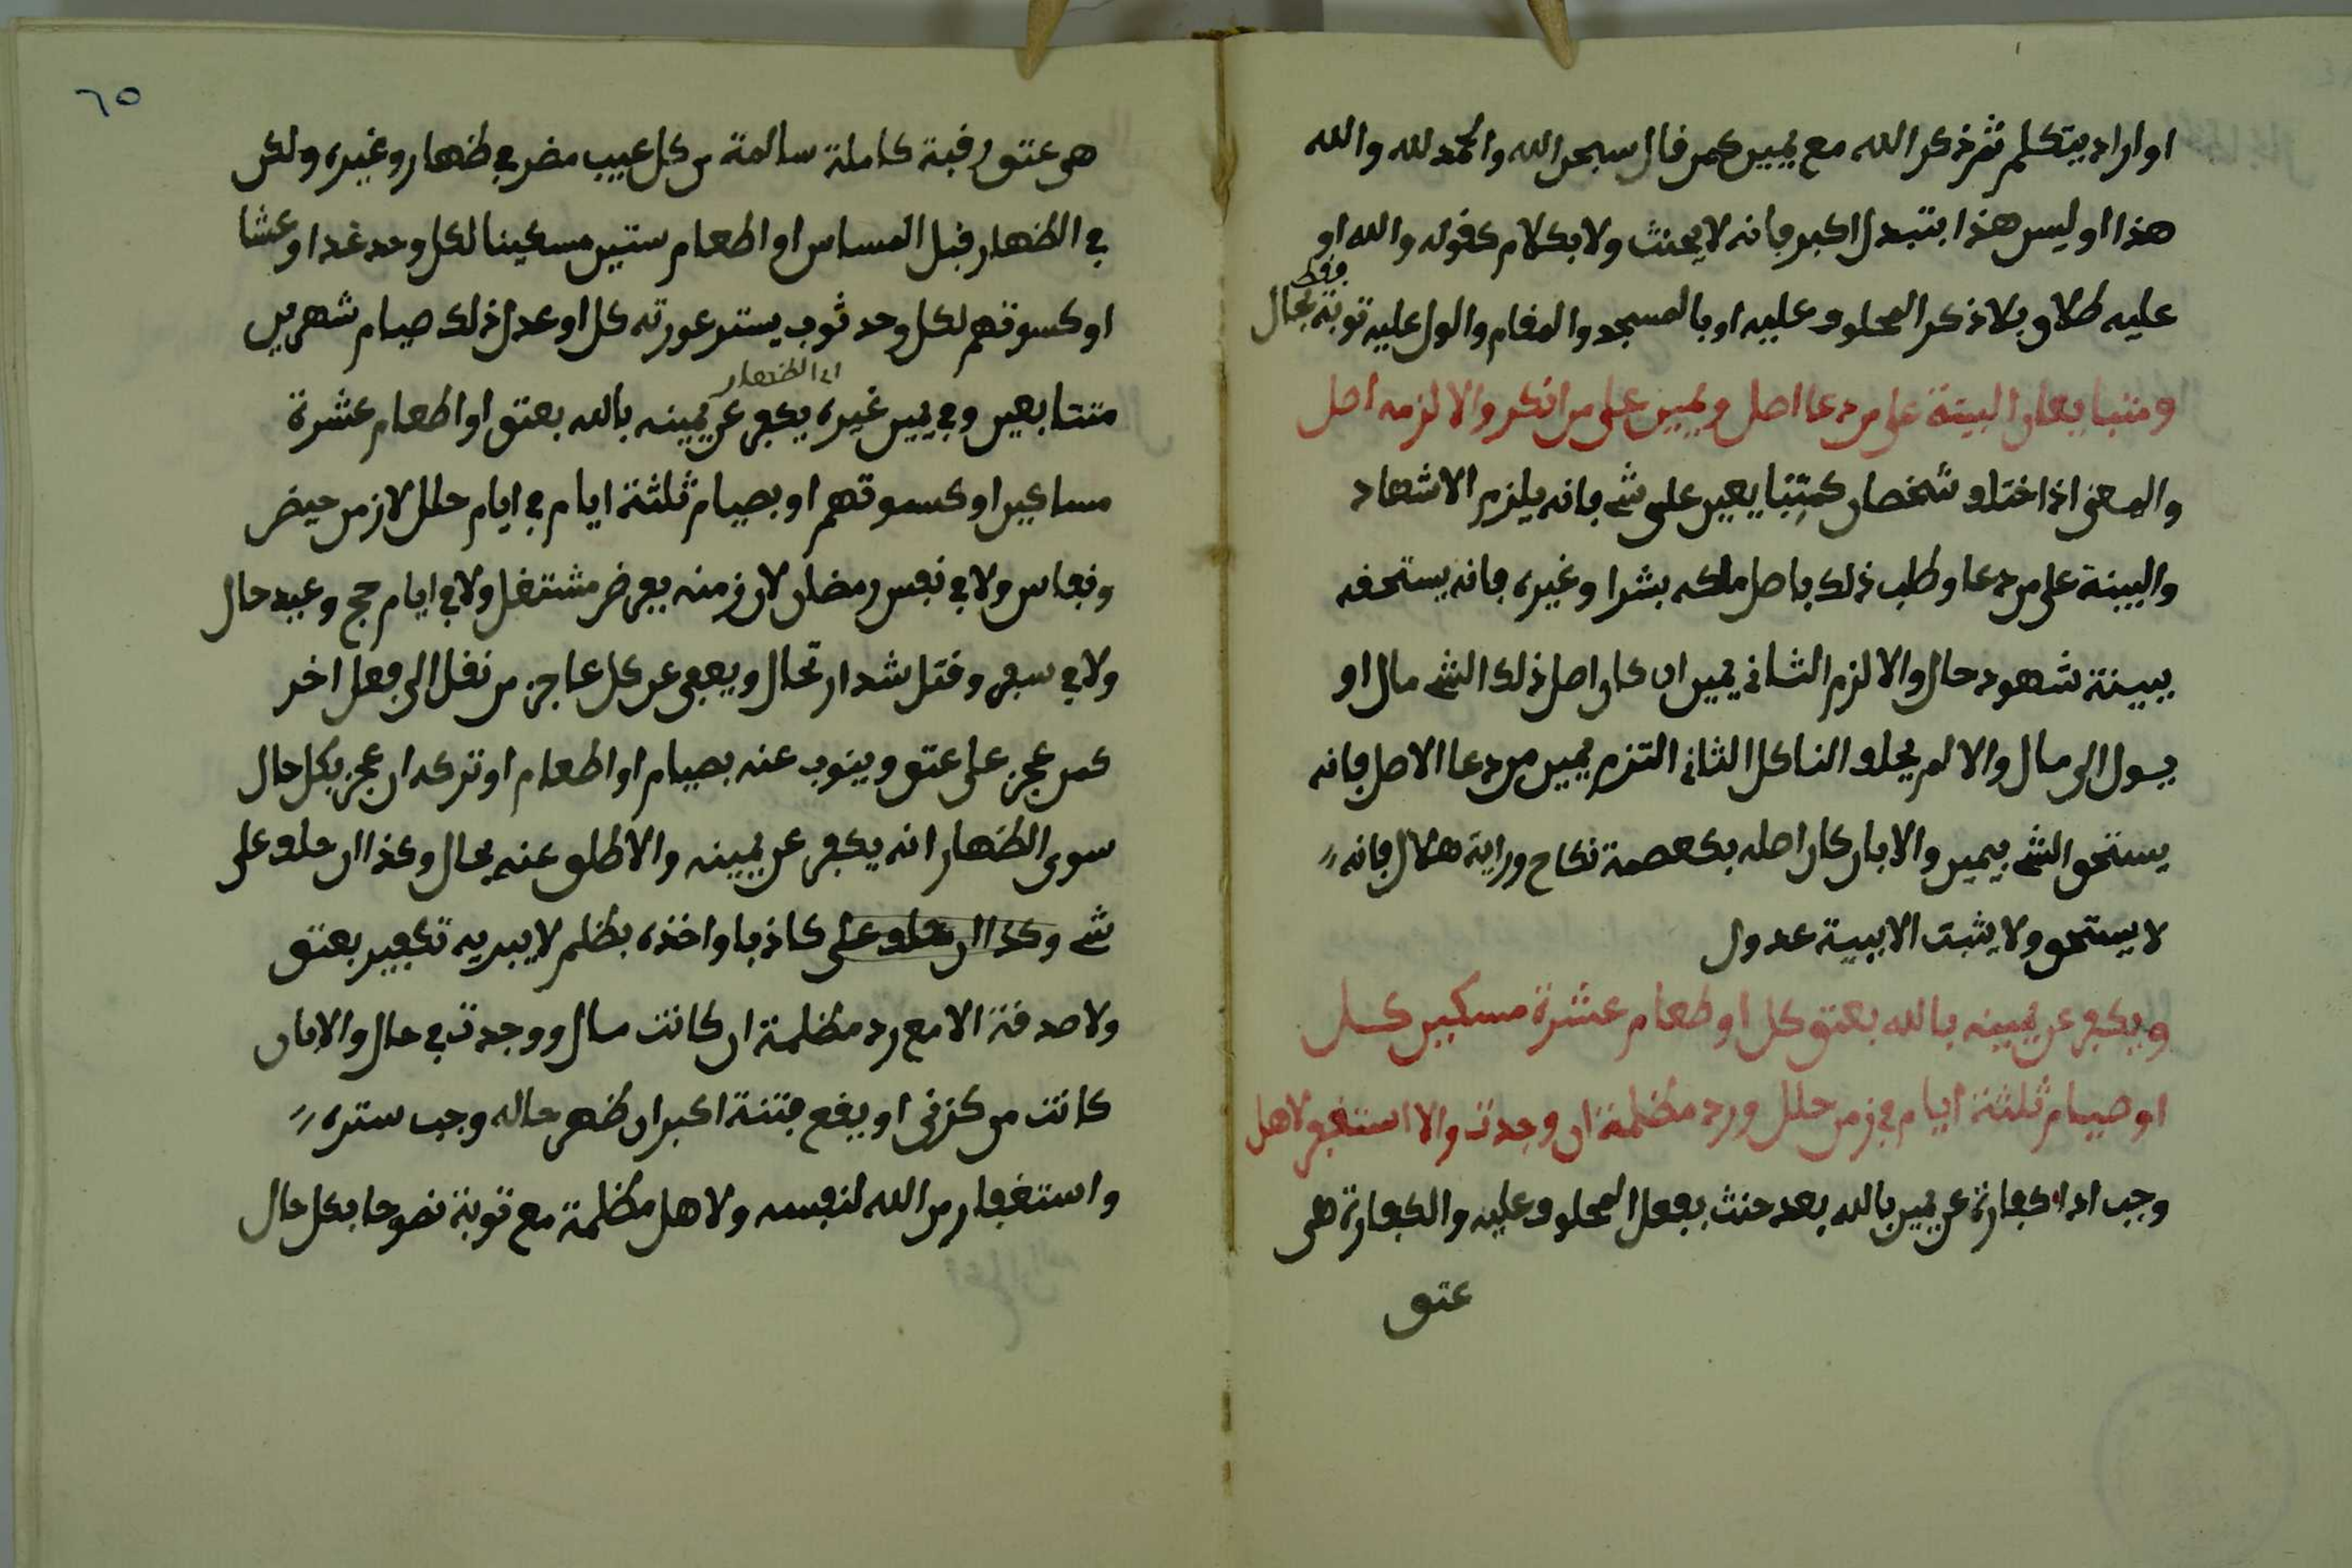 او اراد يتكلم ثم ذكر الله مع يمين كمن قال سبحن الله والحمد لله والله
هذا او ليس هذا بتبدل اكبر فانه لا يحنث ولا بكلام كقوله والله او
عليه طلاق بلا ذكر المحلوف عليه او بالمسجد والمقام والول عليه توبة فقط بحال
ومتبايعان البينة على من دعا اصل ويمين على من انكر والا لزمه اصل
والمعنى اذا اختلف شخصان كمتبايعين على شي فانه يلزم الاشهاد
والبينة على من دعا وطلب ذلك باصل ملكه بشرا وغيره فانه يستحقه
ببينة شهود حال والا لزم الثاني يمين ان كان اصل ذلك الشي مال او
يول الى مال والا لم يحلف الناكل الثاني التزم يمين من دعا الاصل فانه
يستحق الشي بيمين والا بان كان اصله كعصمة نكاح وراية هلال فانه
لا يستحق ولا يثبت الا ببينة عدول
ويكفر عن يمينه بالله بعتق كل او طعام عشرة مسكين كل
او صيام ثلثة ايام في زمن حلل ورد مظلمة ان وجدت والا استغفر لاهل
وجب اداء كفارة عن يمين بالله بعد حنث بفعل المحلوف عليه والكفارة هي
عتق
٦٥
هي عتق رقبة كاملة سالمة من كل عيب مضر في ظهار وغيره ولكن
في الظهار قبل المساس او اطعام ستين مسكينا لكل وحد غدا وعشا
او كسوتهم لكل وحد ثوب يستر عورته كل او عدل ذلك صيام شهرين
متتابعين وفي يمين غيره اي الظهار يكفر عن يمينه بالله بعتق او اطعام عشرة
مساكين او كسوتهم او بصيام ثلثة ايام في ايام حلل لا زمن حيض
ونفاس ولا في نفس رمضان لان زمنه بفرض مشتغل ولا في ايام حج وعيد حال
ولا في سفر وقتل شد ارتحال ويعفى عن كل عاجز من نفل الى فعل اخر
كمن عجز على عتق وينوب عنه بصيام او اطعام او تركه ان عجز بكل حال
سوى الظهار انه يكفر عن يمينه والا طلق عنه بحال وكذا ان حلف على
شي وكذا ان حلف على كاذبا واخذه بظلم لا يبريه تكفير بعتق
ولا صدقة الا مع رد مظلمة ان كانت مال ووجدت في حال والا فان
كانت من كزنى او يقع فتنة اكبر ان ظهر حاله وجب ستره
واستغفار من الله لنفسه ولاهل مظلمة مع توبة نصوحا بكل حال